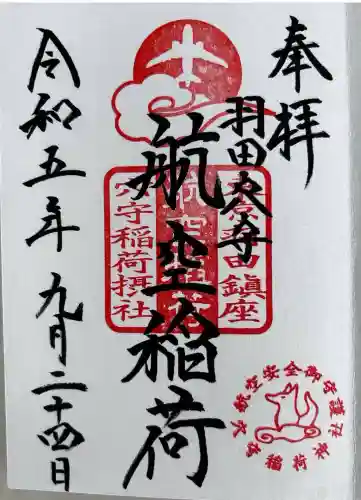 奉拝
羽田穴守
航空稲荷
令和五年九月二十四日
東京羽田鎮座
航空稲荷
穴守稲荷摂社
航空安全御守護
航空稲荷